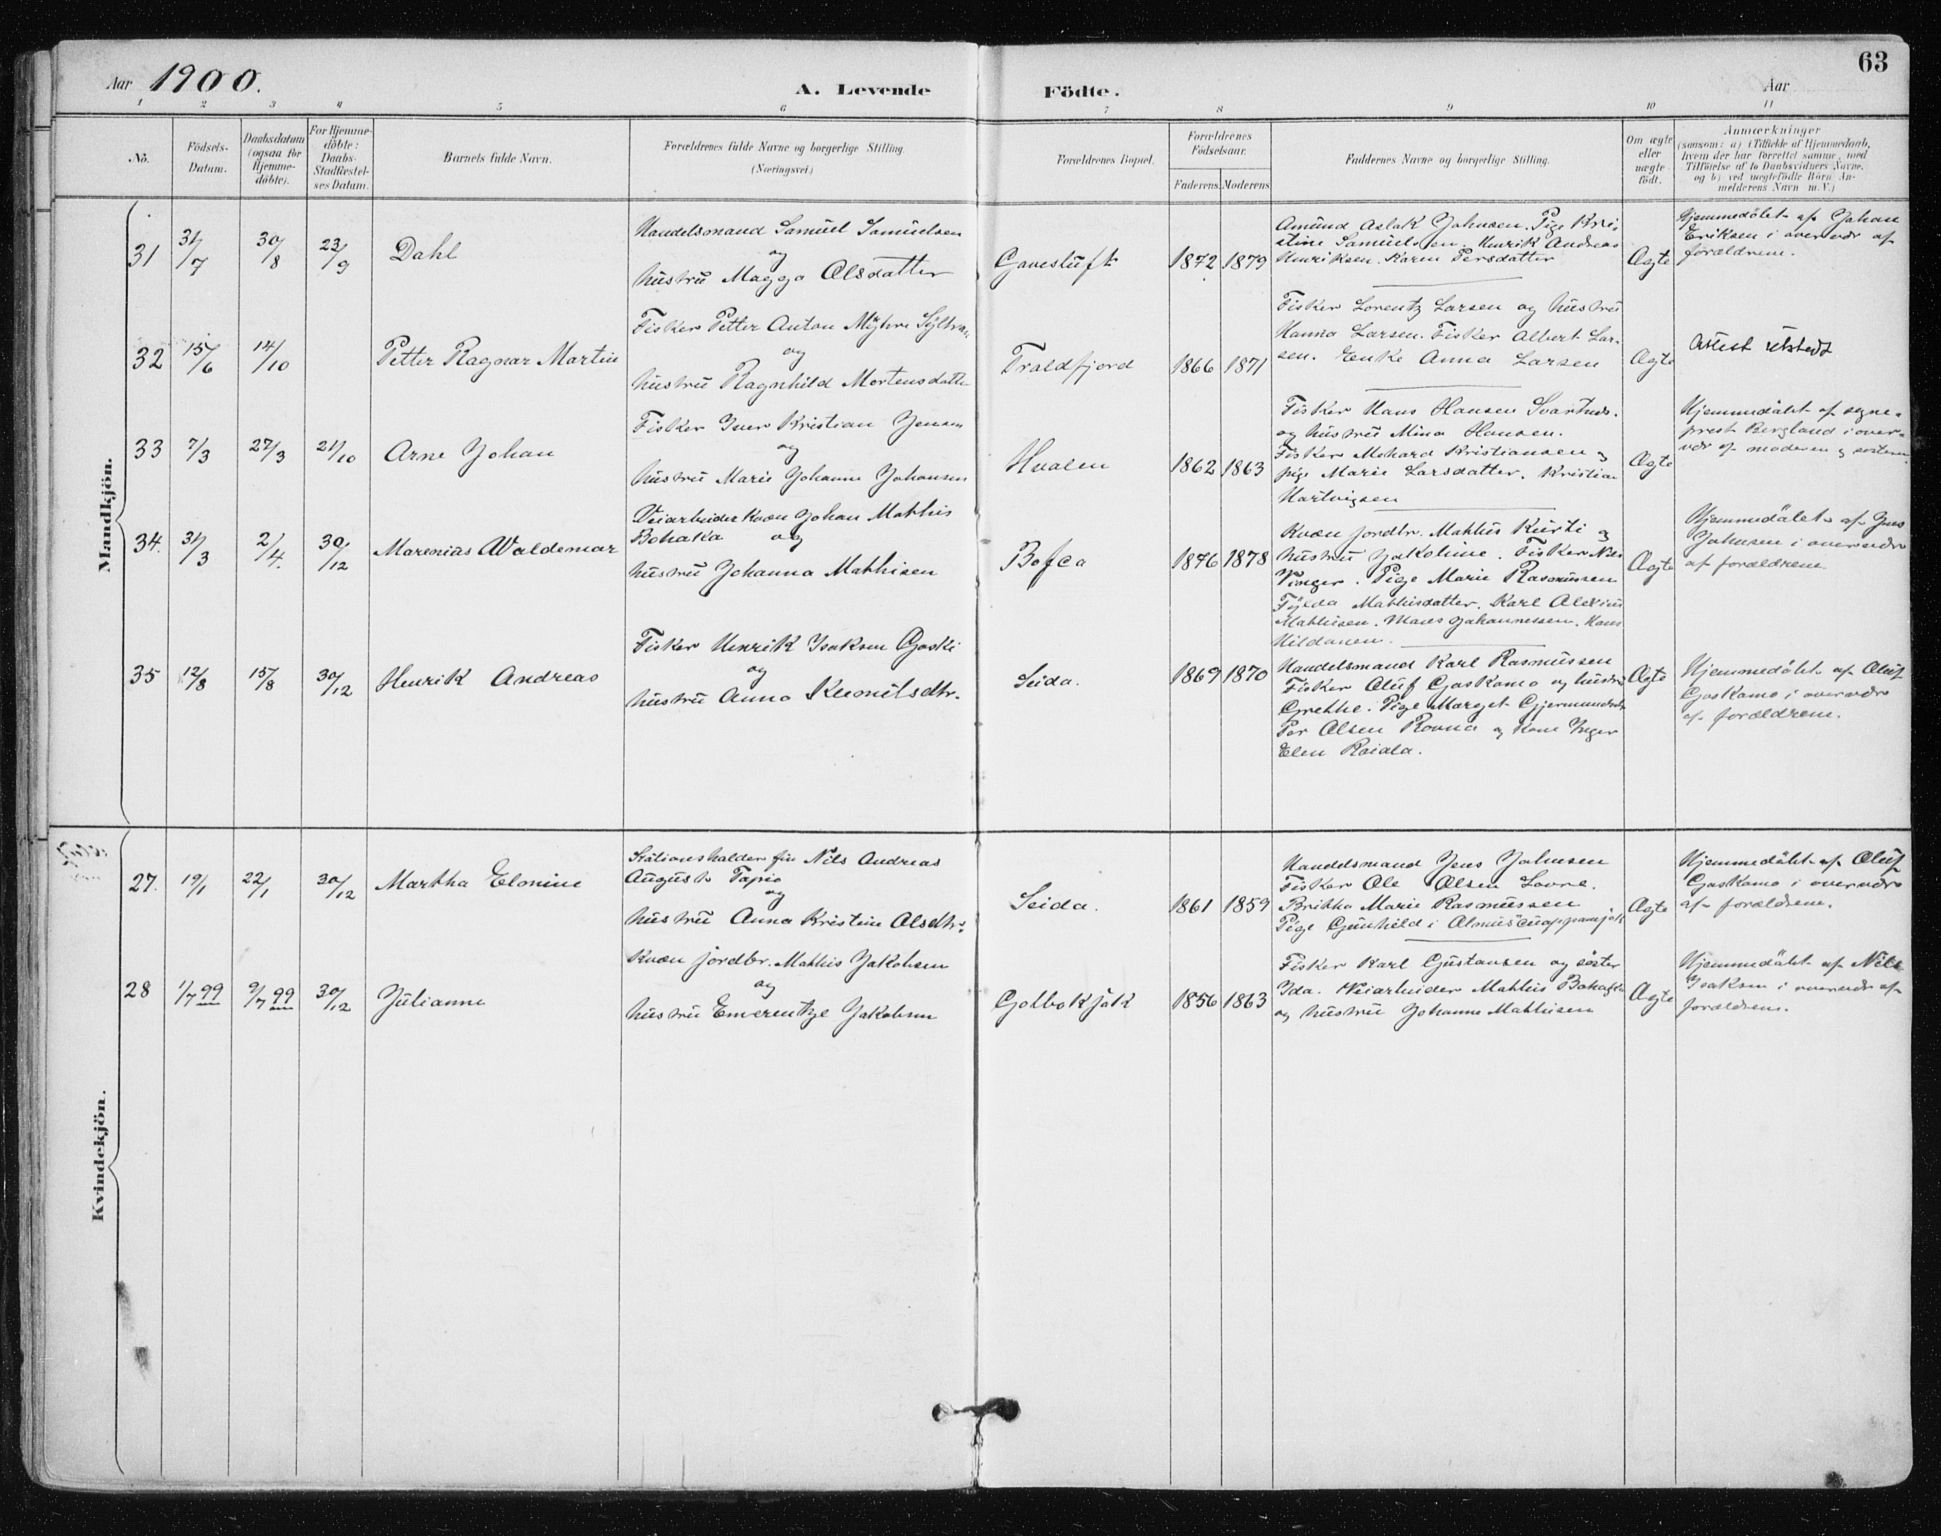 63
Aar 1900. A. Levende Födte. Aar
1 2 3 4 5 6 7 8 9 10 11
No.
Födsels-
Datum.
Daabsdatum
(ogsaa for
Hjemme-
döbte).
For Hjemme-
döbte:
Daabs-
Stadfæstel-
ses Datum.
Barnets fulde Navn.
Forældrenes fulde Navne og borgerlige Stilling.
(Næringsvei.)
Forældrenes Bopæl.
Forældrenes
Födselsaar.
Faderens. Moderens.
Faddernes Navne og borgerlige Stilling.
Om ægte
eller
uægte
födt.
Anmærkninger
(saasom: a) i Tilfælde af Hjemmedaab,
hvem der har forrettet samme, med
Tilföielse af to Daabsvidners Navne,
og b) ved uægtefödte Börn An-
melderens Navn m. V.)
Mandkjön.
31 31/7 30/8 23/9 Dahl
Handelsmand Samuel Samuelsen
og
hustru Magga Olsdatter
Gavesluft 1872 1879
Amund Aslak Johnsen. Pige Kri-
stine Samuelsen. Henrik Andreas
Henriksen. Karen Persdatter
Ægte
Hjemmedöbt af Johan
Eriksen i overvær af
forældrene.
32 15/6 14/10 Petter Ragnar Martin
Fisker Petter Anton Myhre
og
hustru Ragnhild Mortensdatter
Troldfjord 1866 1871
Fisker Lorentz Larsen og hustru
Hanna Larsen. Fisker Albert Lar-
sen. Enke Anna Larsen
Ægte
Attest utstedt
33 7/3 27/3 21/10 Arne Johan
Fisker Iver Kristian Jensen
og
hustru Marie Johanne Johansen
Hvalen 1862 1863
Fisker Hans Hansen
og hustru Mina Hansen.
Fisker Mohard Kristiansen og
pige Marie Larsdatter. Kristian
Hartvigsen
Ægte
Hjemmedöbt af sogne-
prest Bergland i over-
vær af moderen og
34. 31/3 2/4. 30/12 Marenias Waldemar
Veiarbeider Kvæn Johan Mathis
Bohaka og
hustru Johanna Mathisen
Bofca 1876 1878
Kvæn jordbr. Mathis Kurti og
hustru Jakobine. Fisker Nils
Vinger. Pige Marie Rasmussen
Mathisdatter. Karl Alexius
Mathisen. Johannessen. Hans
Hildonen.
Ægte
Hjemmedöbt af Jens
Johnsen i overvær
af forældrene.
35 12/8 15/8 30/12 Henrik Andreas
Fisker Henrik Isaksen Gaski
og
hustru Anna
Seida. 1869 1870
Handelsmand Karl Rasmussen
Fisker Oluf Gaskamo og hustru
Grethe. Pige Marget
Per Olsen Rovna og kone Inger
Elen Raiala.
Ægte
Hjemmedöbt af Oluf
Gaskamo i overvær
af forældrene.
Kvindekjön.
27. 19/1 22/1 30/12 Martha Elonine
Stationsholder fin Nils Andreas
August Tapio
og
hustru Anna Kristine Olsdtr.
Seida. 1861 1859
Handelsmand Jens Johnsen
Fisker Ole Olsen Lovre.
Britha Marie Rasmussen
Pige Gunhild i
Ægte
Hjemmedöbt af Oluf
Gaskamo i overvær
af forældrene.
28 1/7 99 9/7 99 30/12 Julianne
Kvæn jordbr. Mathis Jakobsen
og
hustru Emerentze Jakobsen
Golbokjok 1856 1863
Fisker Karl Gustavsen og söster
Ida. Veiarbeider Mathis
og hustru Johanne Mathisen
Ægte
Hjemmedöbt af Nils
Isaksen i overvær af
forældrene.